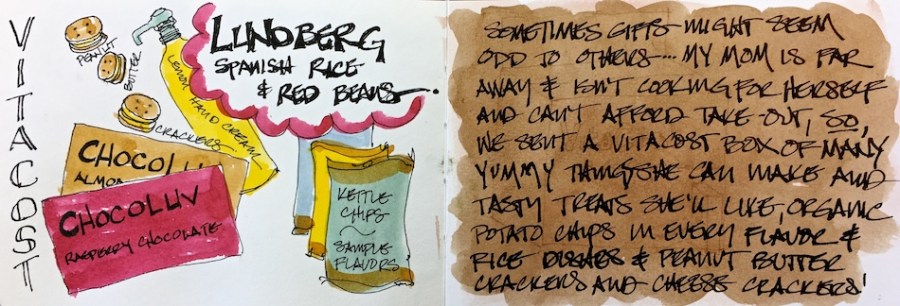 VITACOST
PEANUT
BUTTER
CRACKERS
LEMON HAND CREAM
LUNDBERG
SPANISH RICE
& RED BEANS
CHOCOLUV
ALMO
CHOCOLUV
RASPBERRY CHOCOLATE
KETTLE
CHIPS
~
SAMPLE
FLAVORS
SOMETIMES GIFTS MIGHT SEEM
ODD TO OTHERS.... MY MOM IS FAR
AWAY & ISN'T COOKING FOR HERSELF
AND CAN'T AFFORD TAKE OUT, SO,
WE SENT A VITACOST BOX OF MANY
YUMMY THINGS SHE CAN MAKE AND
TASTY TREATS SHE'LL LIKE, ORGANIC
POTATO CHIPS IN EVERY FLAVOR &
RICE DISHES & PEANUT BUTTER
CRACKERS AND CHEESE CRACKERS!